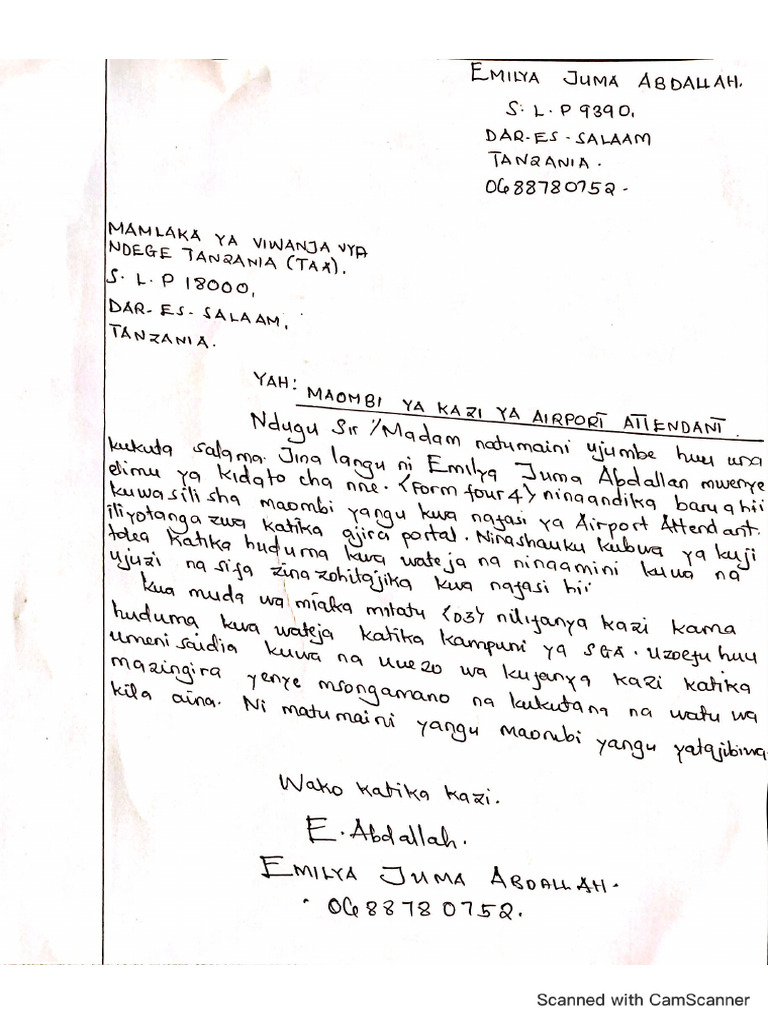 EMILYA JUMA ABDALLAH.
S.L.P 9390,
DAR-ES-SALAAM
TANZANIA.
0688780752.
MAMLAKA YA VIWANJA VYA
NDEGE TANZANIA (TAA).
S.L.P 18000,
DAR-ES-SALAAM,
TANZANIA.
YAH: MAOMBI YA KAZI YA AIRPORT ATTENDANT.
Ndugu Sir/Madam natumaini ujumbe huu una
kukuta salama. Jina langu ni Emilya Juma Abdallah mwenye
elimu ya kidato cha nne. (Form four 4) ninaandika barua hii
kuwasilisha maombi yangu kwa nafasi ya Airport Attendant.
iliyotangazwa katika ajira portal. Ninashauku kubwa ya kuji
tolea katika huduma kwa wateja na ninaamini kuwa na
ujuzi na sifa zinazohitajika kwa nafasi hii
Kwa muda wa miaka mitatu (03) nilifanya kazi kama
huduma kwa wateja katika kampuni ya SGA. Uzoefu huu
umenisaidia kuwa na uwezo wa kufanya kazi katika
mazingira yenye msongamano na kukutana na watu wa
kila aina. Ni matumaini yangu maombi yangu yatajibiwa
Wako katika kazi.
E. Abdallah.
EMILYA JUMA ABDALLAH.
0688780752.
Scanned with CamScanner